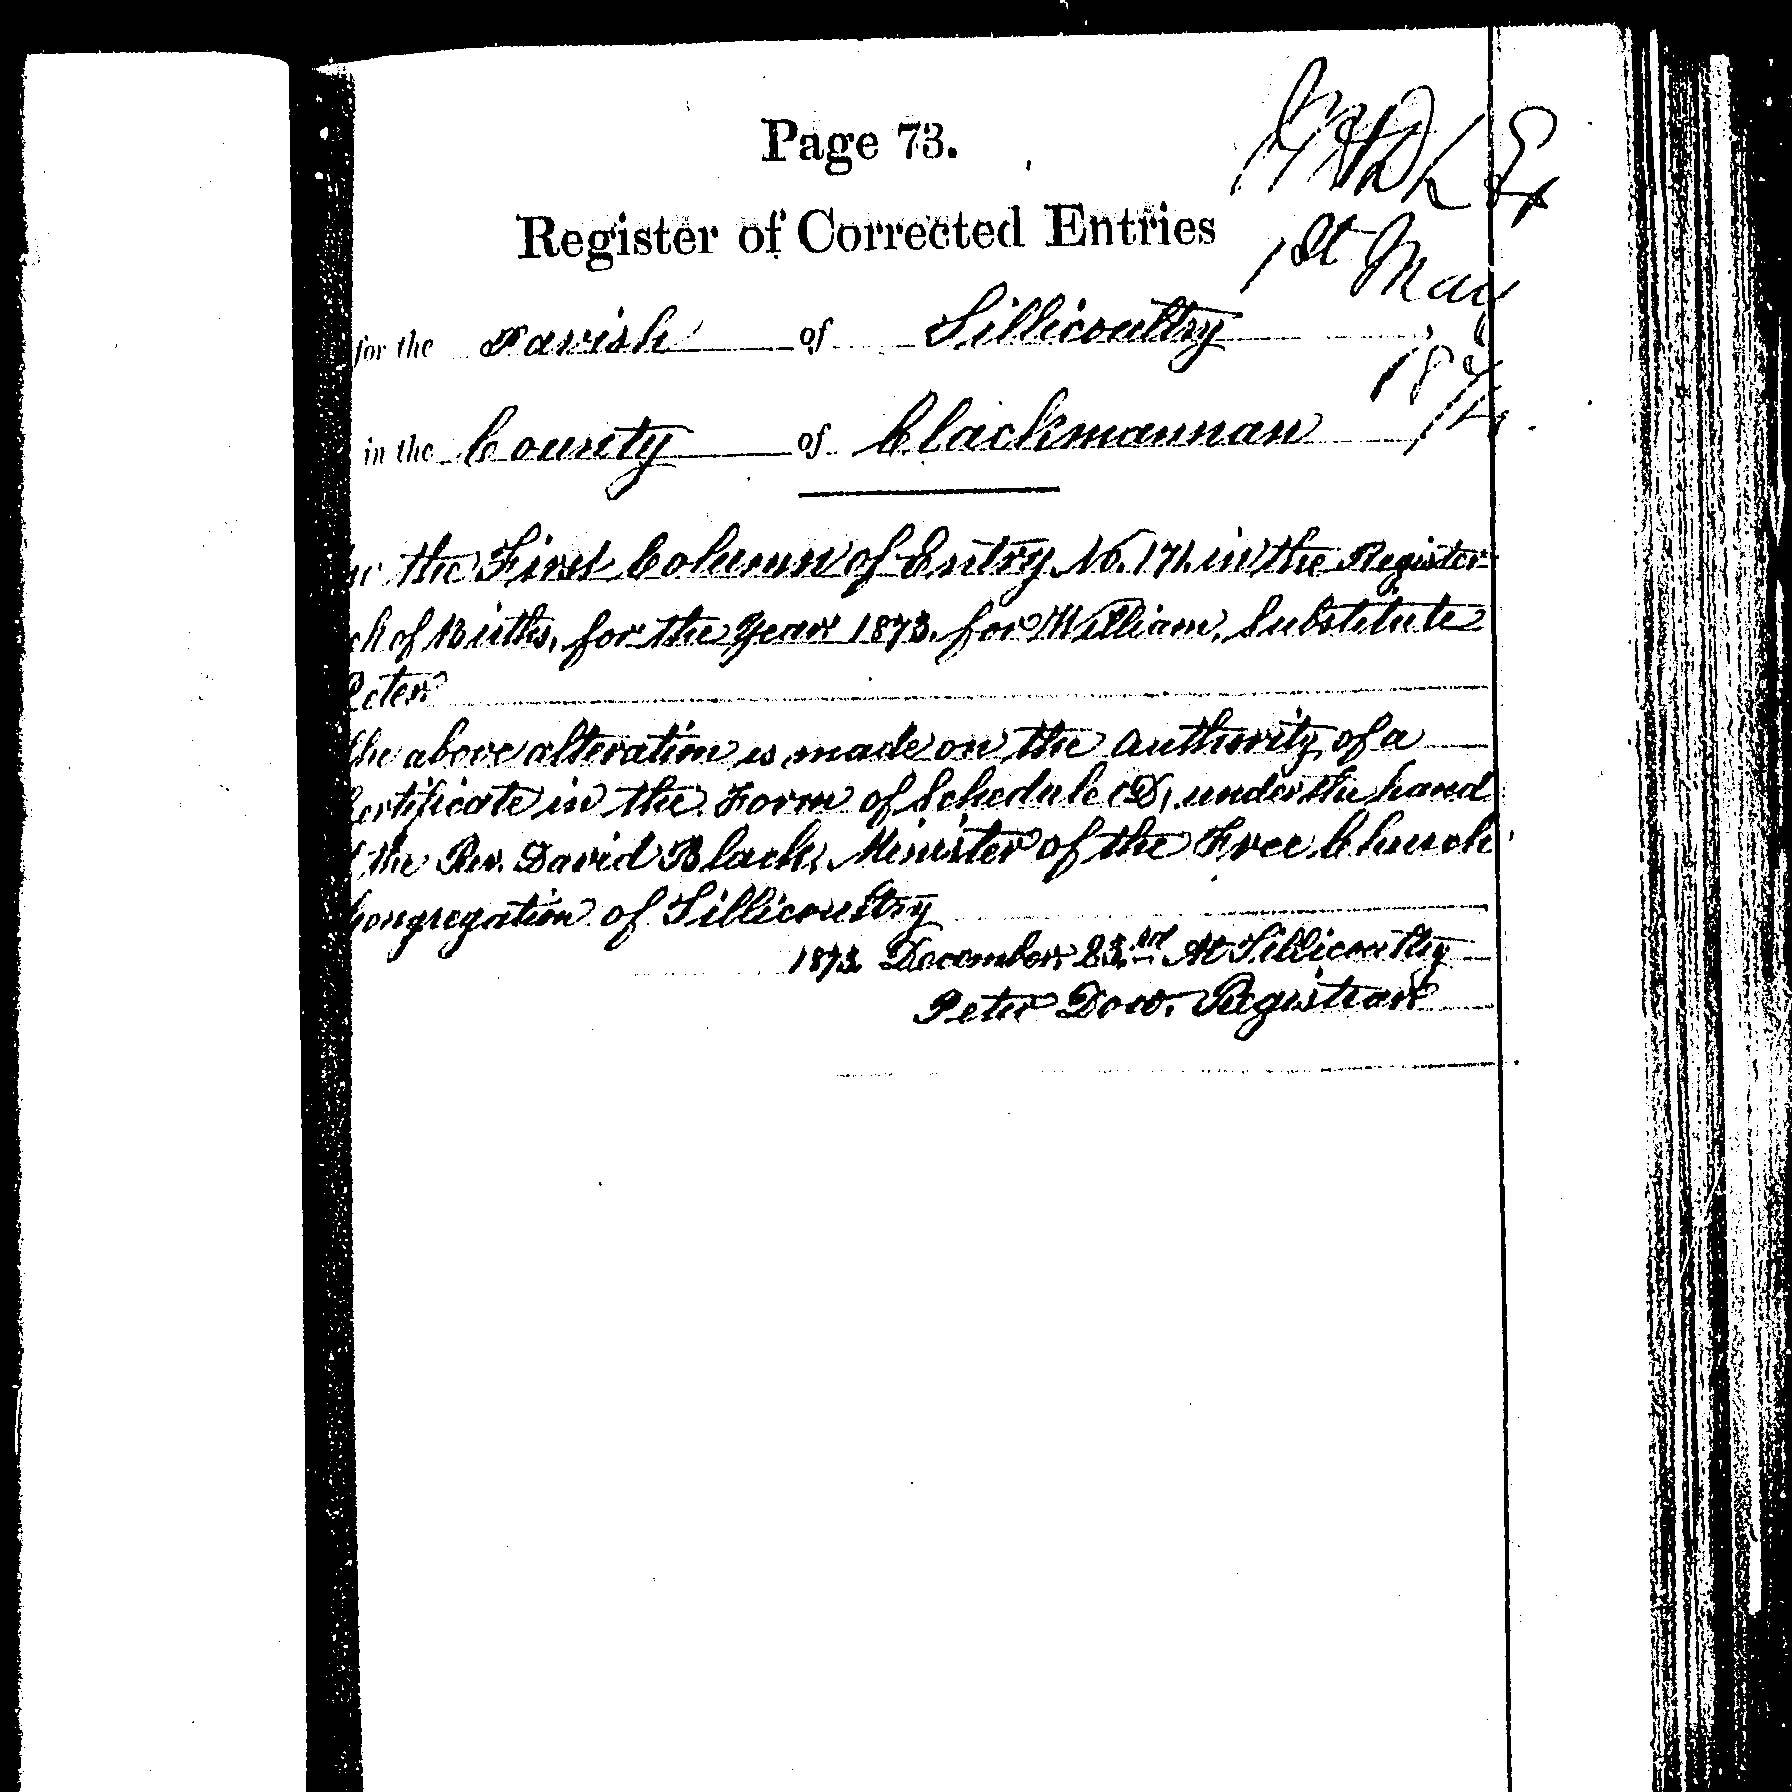 Page 73.
Register of Corrected Entries
1st May
for the Parish of Tillicoultry
1874
in the County of Clackmannan
the First Column of Entry No. 171. in the Register
of Births, for the Year 1873. for William, Substitute
Peter.
The above alteration is made on the authority of a
Certificate in the Form of Schedule (D) under the hand
the Rev. David Black, Minister of the Free Church
Congregation of Tillicoultry
1873. December 23rd At Tillicoultry
Peter Dow. Registrar